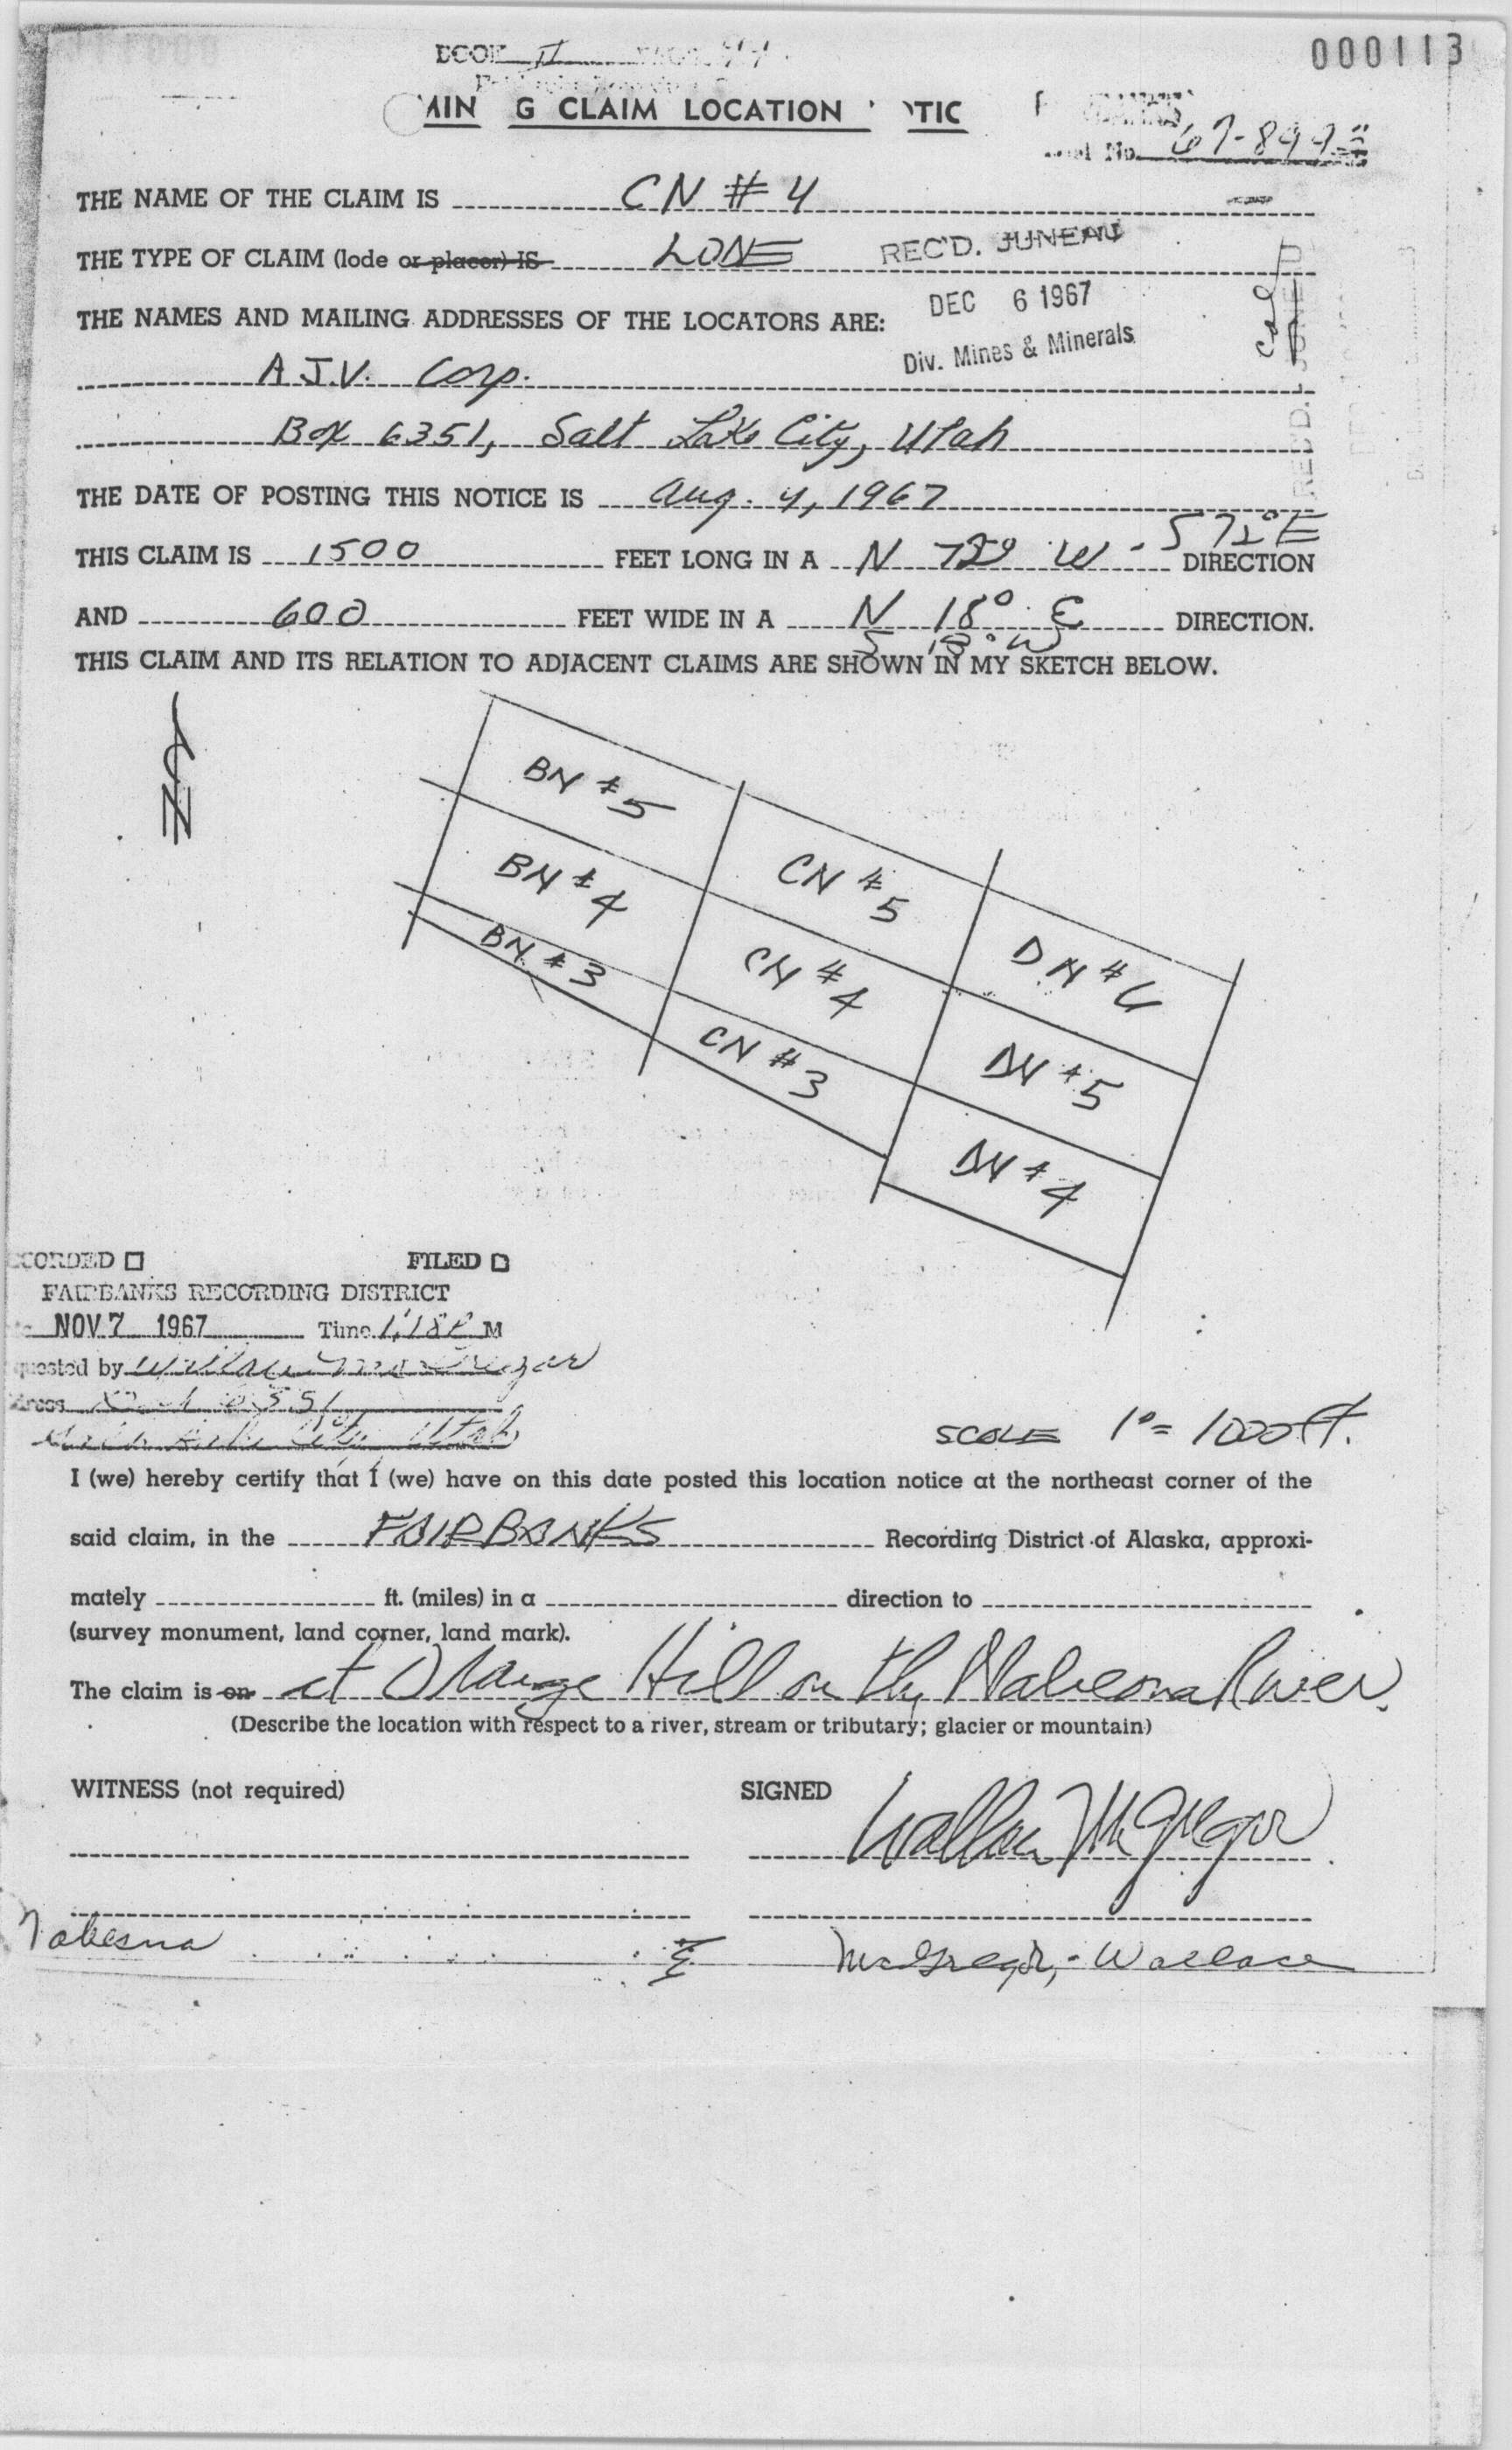 000113
BOOK II
MIN G CLAIM LOCATION OTIC
No. 67-899
THE NAME OF THE CLAIM IS CN # 4
THE TYPE OF CLAIM (lode or placer) IS LODE
REC'D. JUNEAU
DEC 6 1967
Div. Mines & Minerals
THE NAMES AND MAILING ADDRESSES OF THE LOCATORS ARE:
A.J.V. Corp.
Box 6351, Salt Lake City, Utah
REC'D. JUNEAU
THE DATE OF POSTING THIS NOTICE IS Aug. 4, 1967
THIS CLAIM IS 1500 FEET LONG IN A N 72° W - S 72° E DIRECTION
AND 600 FEET WIDE IN A N 18° E DIRECTION.
S 18° W
THIS CLAIM AND ITS RELATION TO ADJACENT CLAIMS ARE SHOWN IN MY SKETCH BELOW.
N
BN #5
BN #4
BN #3
CN #5
CN #4
CN #3
DN #6
DN #5
DN #4
CORDED FILED
FAIRBANKS RECORDING DISTRICT
NOV 7 1967 Time 1:18 P M
quested by Wallace McGregor
Box 6351
Salt Lake City Utah
SCALE 1" = 1000 ft.
I (we) hereby certify that I (we) have on this date posted this location notice at the northeast corner of the
said claim, in the FAIRBANKS Recording District of Alaska, approxi-
mately ft. (miles) in a direction to
(survey monument, land corner, land mark).
The claim is on at Orange Hill on the Nabesna River.
(Describe the location with respect to a river, stream or tributary; glacier or mountain)
WITNESS (not required) SIGNED
Wallace McGregor
Nabesna McGregor, - Wallace